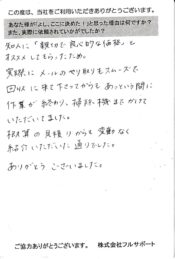 この度は、当社をご利用いただきありがとうございます。
あなた様が「よし、ここに決めた!」と思った理由は何ですか?
また、実際に依頼されていかがでしたか?
知人に「親切で良心的な価格」と
オススメしてもらったため。
実際に メールのやり取りもスムーズで
回収に来て下さってからもあっという間に
作業が終わり、掃除機までかけて
いただいてました。
料金の見積りからも変動なく
紹介いただいた通りでした。
ありがとうございました。
ご協力ありがとうございます。 株式会社フルサポート